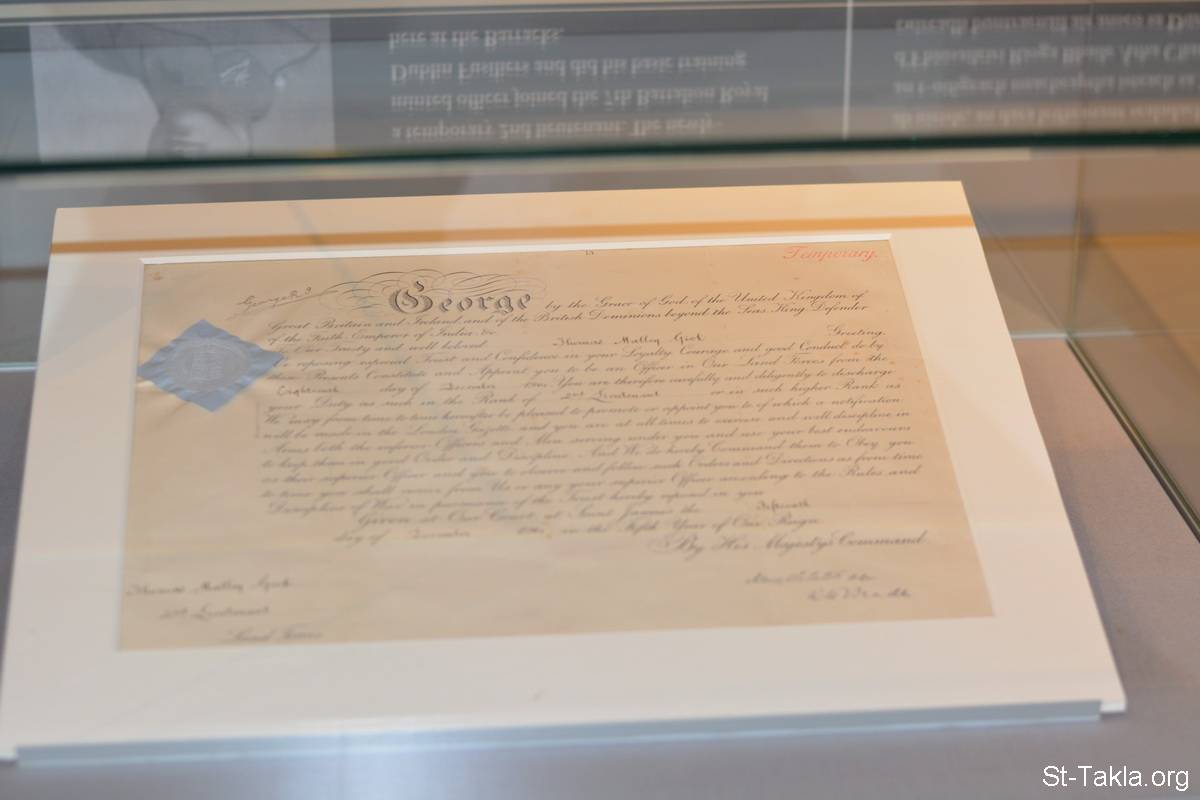 a temporary 2nd lieutenant. The newly-
minted officer joined the 7th Battalion Royal
Dublin Fusiliers and did his basic training
here at the Barracks.
Temporary.
George by the Grace of God, of the United Kingdom of
Great Britain and Ireland, and of the British Dominions beyond the Seas, King, Defender
of the Faith, Emperor of India, &c.
To Our Trusty and well beloved Thomas Greeting.
We reposing especial Trust and Confidence in your Loyalty, Courage, and good Conduct, do by
these Presents Constitute and Appoint you to be an Officer in Our Land Forces from the
day of December You are therefore carefully and diligently to discharge
your Duty as such in the Rank of 2nd Lieutenant or in such higher Rank as
We may from time to time hereafter be pleased to promote or appoint you to, of which a notification
will be made in the London Gazette, and you are at all times to exercise and well discipline in
Arms both the inferior Officers and Men serving under you and use your best endeavours
to keep them in good Order and Discipline. And We do hereby Command them to Obey you
as their superior Officer and you to observe and follow such Orders and Directions as from time
to time you shall receive from Us, or any your superior Officer, according to the Rules and
Discipline of War, in pursuance of the Trust hereby reposed in you.
Given at Our Court, at Saint James's, the
day of December in the Fifth Year of Our Reign.
By His Majesty's Command.
Thomas
2nd Lieutenant
Land Forces
St-Takla.org